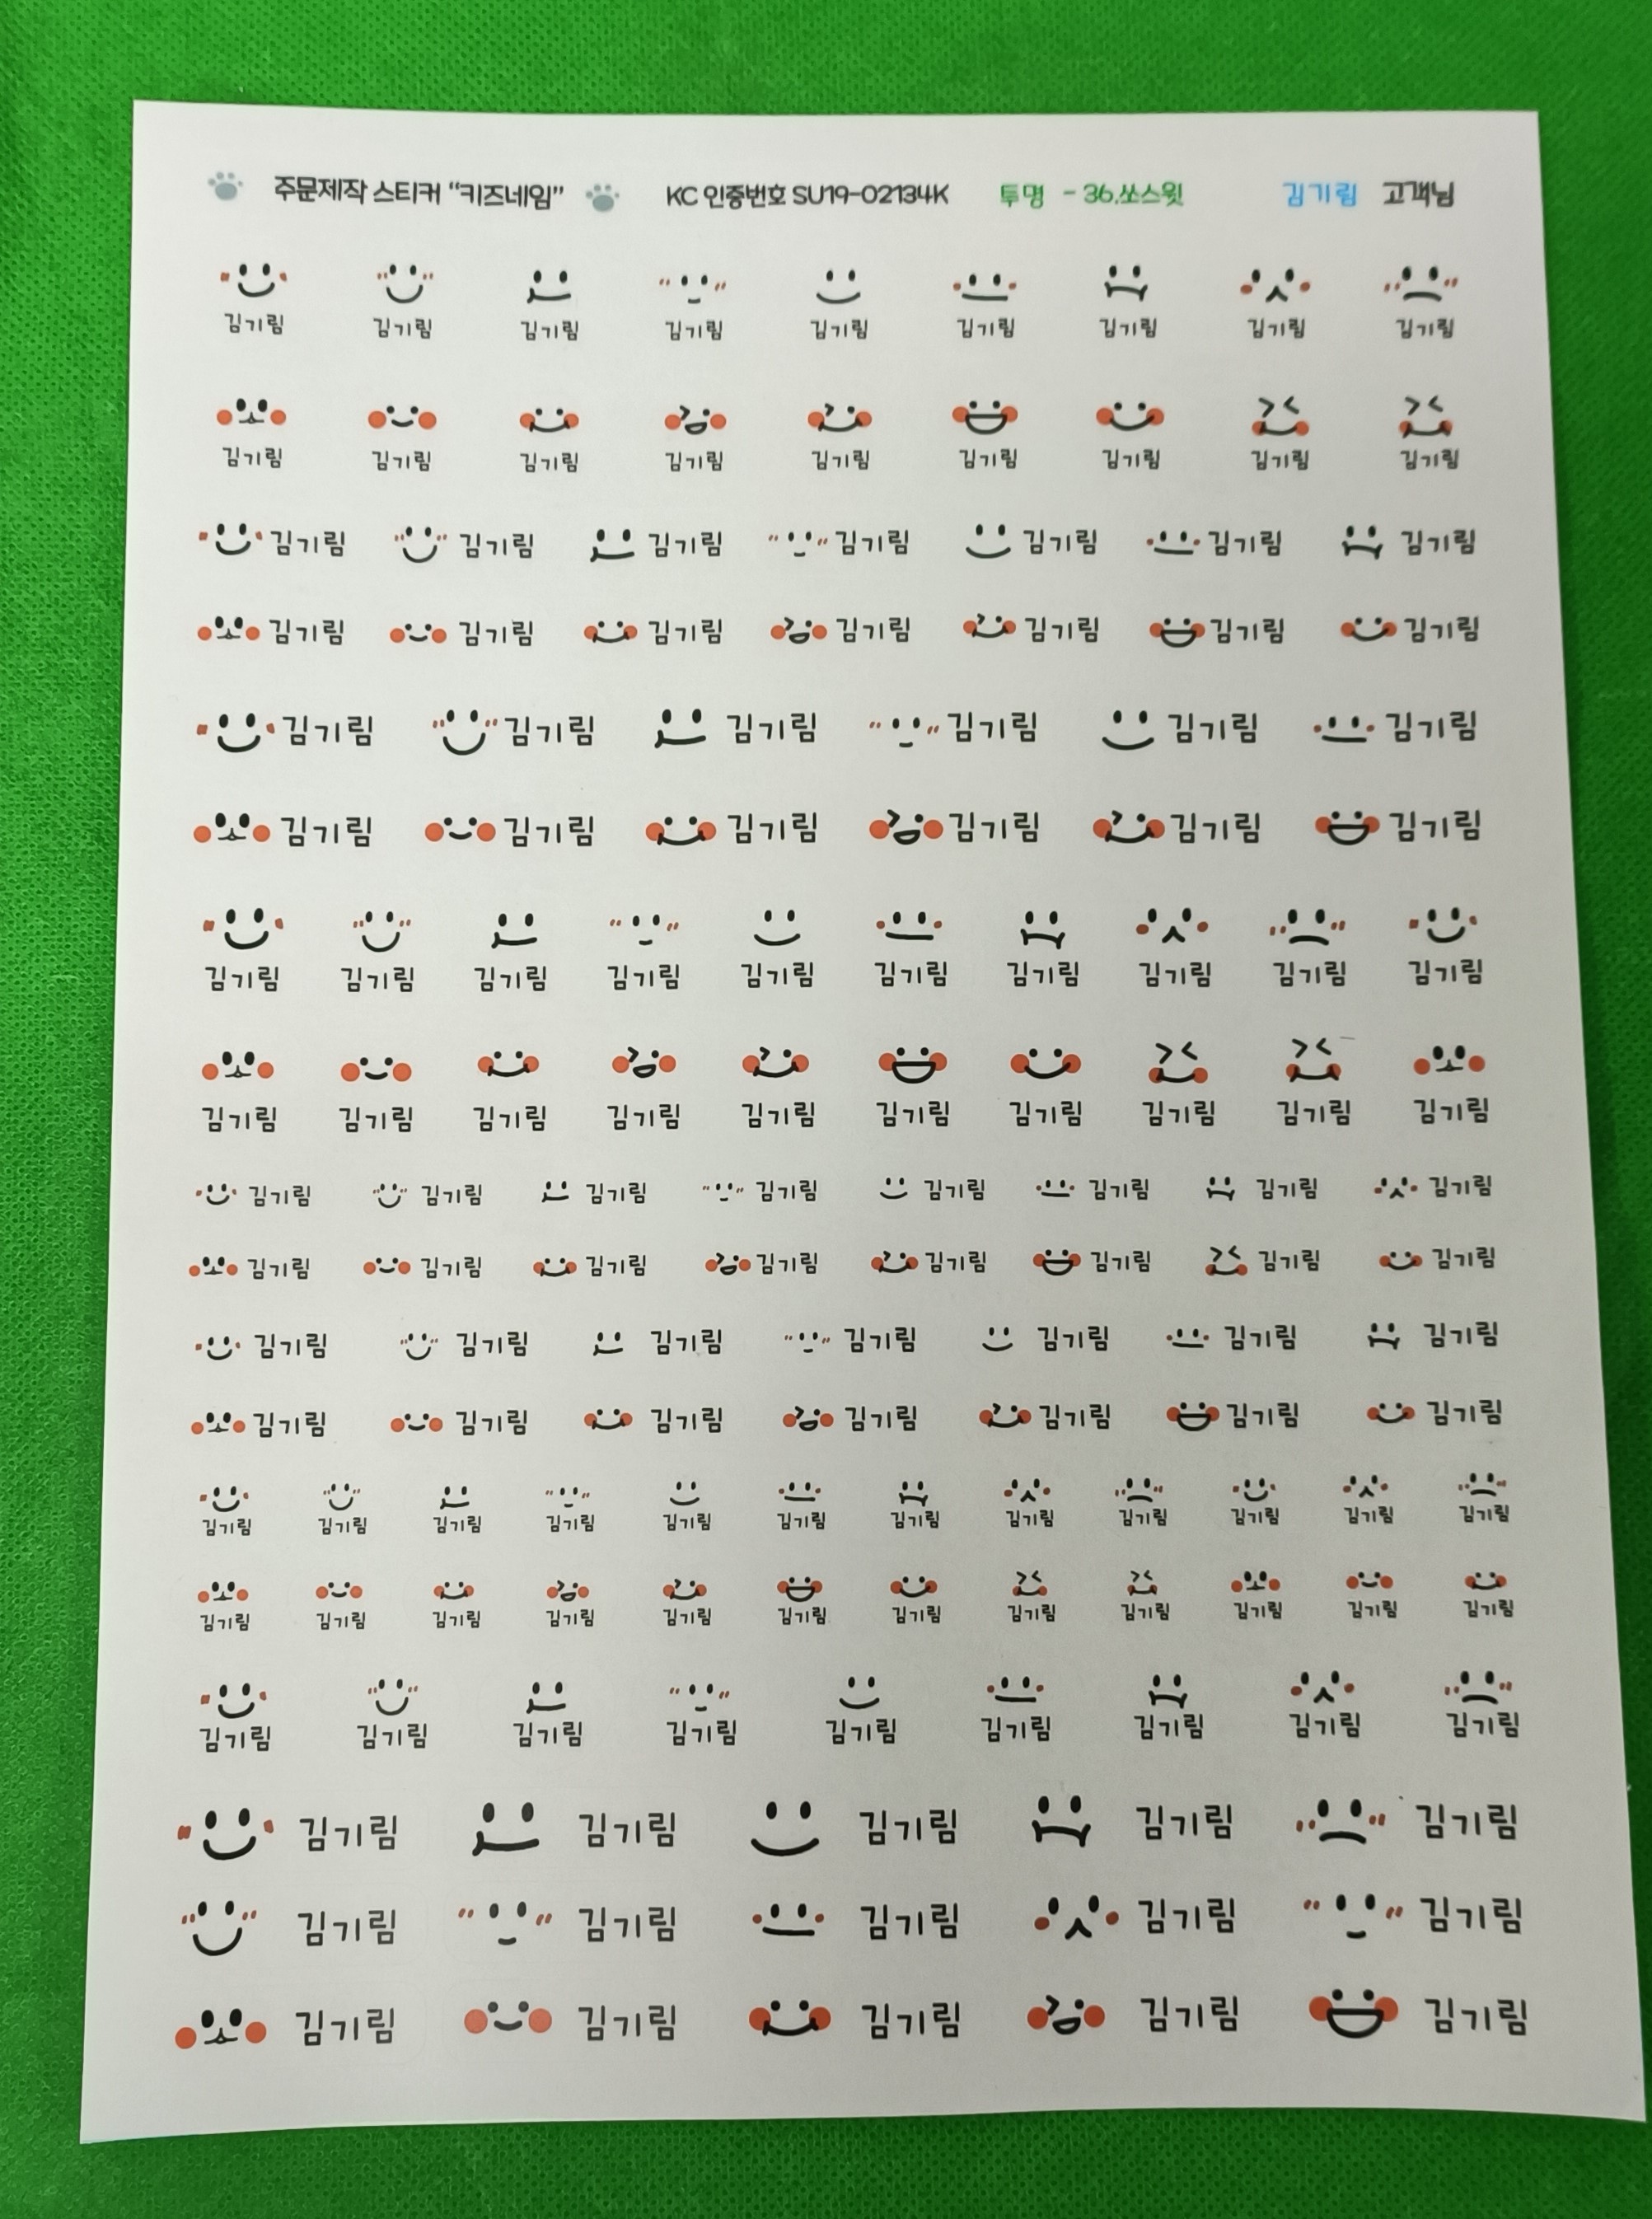 주문제작 스티커 “키즈네임” KC 인증번호 SU19-02134K 투명 - 36.쏘스윗 김기림 고객님
김기림 김기림 김기림 김기림 김기림 김기림 김기림 김기림 김기림
김기림 김기림 김기림 김기림 김기림 김기림 김기림 김기림 김기림
김기림 김기림 김기림 김기림 김기림 김기림 김기림
김기림 김기림 김기림 김기림 김기림 김기림 김기림
김기림 김기림 김기림 김기림 김기림 김기림
김기림 김기림 김기림 김기림 김기림 김기림
김기림 김기림 김기림 김기림 김기림 김기림 김기림 김기림 김기림 김기림
김기림 김기림 김기림 김기림 김기림 김기림 김기림 김기림 김기림 김기림
김기림 김기림 김기림 김기림 김기림 김기림 김기림 김기림
김기림 김기림 김기림 김기림 김기림 김기림 김기림 김기림
김기림 김기림 김기림 김기림 김기림 김기림 김기림
김기림 김기림 김기림 김기림 김기림 김기림 김기림
김기림 김기림 김기림 김기림 김기림 김기림 김기림 김기림 김기림 김기림 김기림 김기림
김기림 김기림 김기림 김기림 김기림 김기림 김기림 김기림 김기림 김기림 김기림 김기림
김기림 김기림 김기림 김기림 김기림 김기림 김기림 김기림 김기림
김기림 김기림 김기림 김기림 김기림
김기림 김기림 김기림 김기림 김기림
김기림 김기림 김기림 김기림 김기림